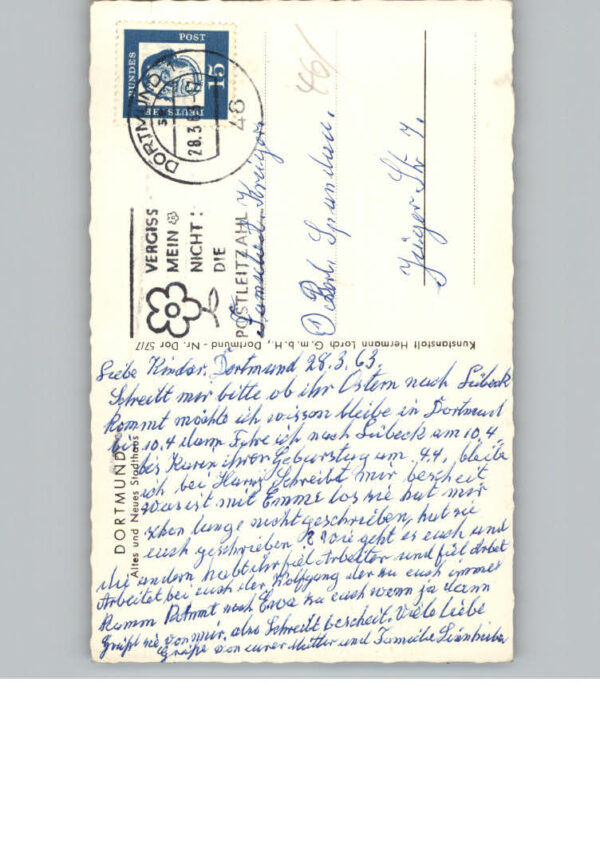 DEUTSCHE
BUNDES
POST
15
DORTMUND
28.3.63
46
VERGISS
MEIN
NICHT!
DIE
POSTLEITZAHL
46
Familie Krüger
Berl. Spandau.
Jäger Str. 7.
Kunstanstalt Hermann Lorch G.m.b.H., Dortmund - Nr. Dor 5717
DORTMUND
Altes und Neues Stadthaus
Liebe Kinder, Dortmund 28.3.63,
Schreibt mir bitte ob ihr Ostern nach Lübeck
kommt möchte ich wissen bleibe in Dortmund
bis 10.4 dann Fahre ich nach Lübeck am 10.4,
bis Karin ihren Geburstag am 4.4, bleibe
ich bei Schreibt mir bescheit
was ist mit Emme los sie hat mir
schon lange nicht geschrieben, hat sie
euch geschrieben? Wie geht es euch und
die andern habt ihr fiel Arbeiter und fiel Arbet
Arbeitet bei euch der Wolfgang der zu euch immer
kamm kommt noch Ewa zu euch wenn ja dann
Grüßt sie von mir, also Schreibt bescheit. Viele liebe
Grüße von eurer Mutter und Familie